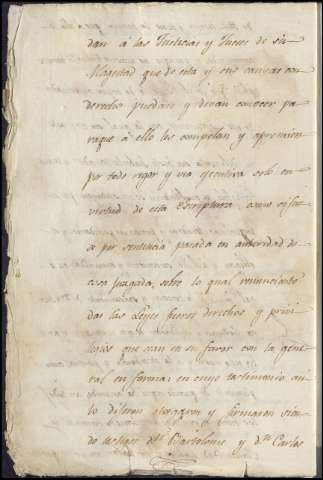 dan á las Justicias y Jueces de su
Magestad que de esta y sus causas con
derecho puedan y devan conocer pa
raque á ello les compelan y apremien
por todo rigor y via executiva solo en
virtud de esta Escriptura como si fue
se por sentencia pasada en autoridad de
cosa juzgada, sobre lo qual renunciaron to
das las Leyes fueros derechos y privi
lexios que sean en su favor con la gene
ral en forma: en cuyo testimonio asi
lo dixeron otorgaron y firmaron sien
do testigos dn Bartolome y dn Carlos